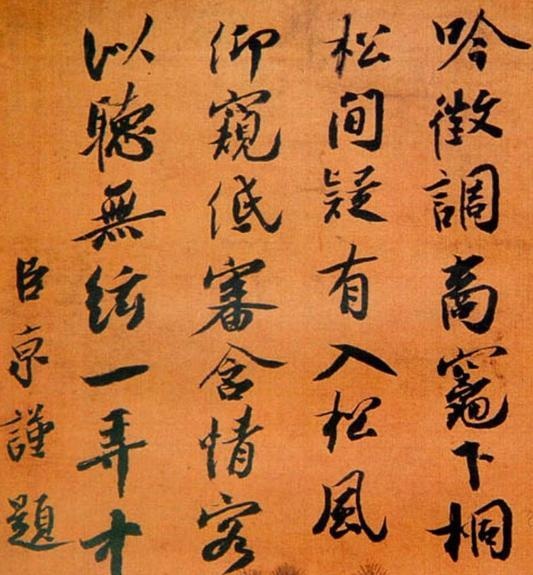 吟徵調商竈下桐
松間疑有入松風
仰窺低審含情客
似聽無絃一弄
臣京謹題